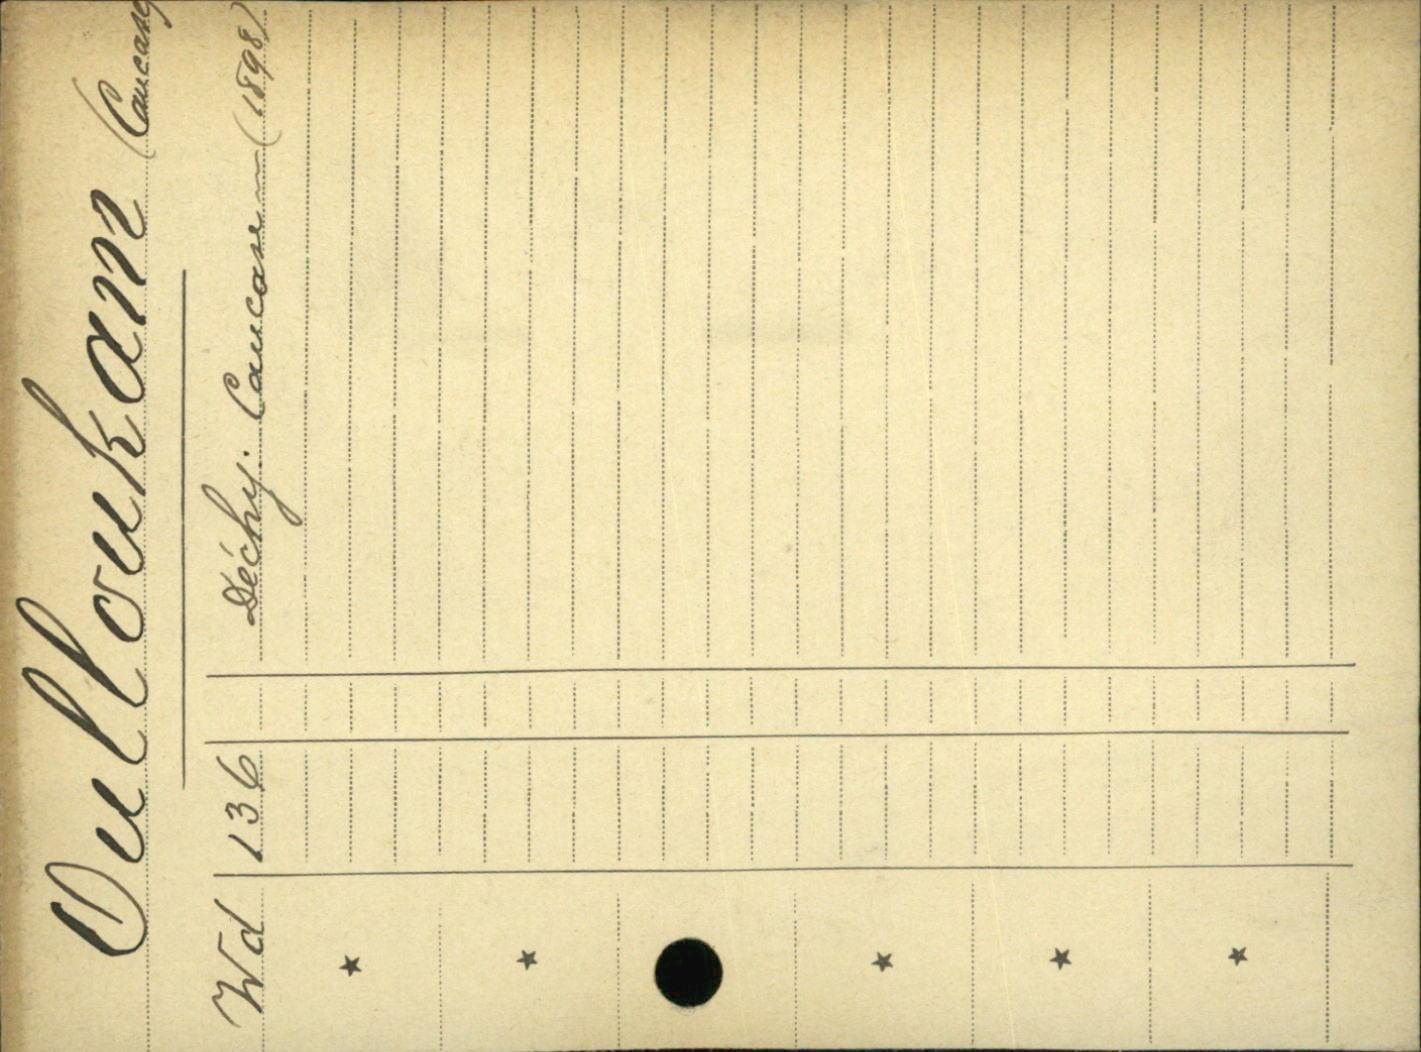 Oulloukam (Caucase)
Wd 136 Déchy: Caucase — (1898)